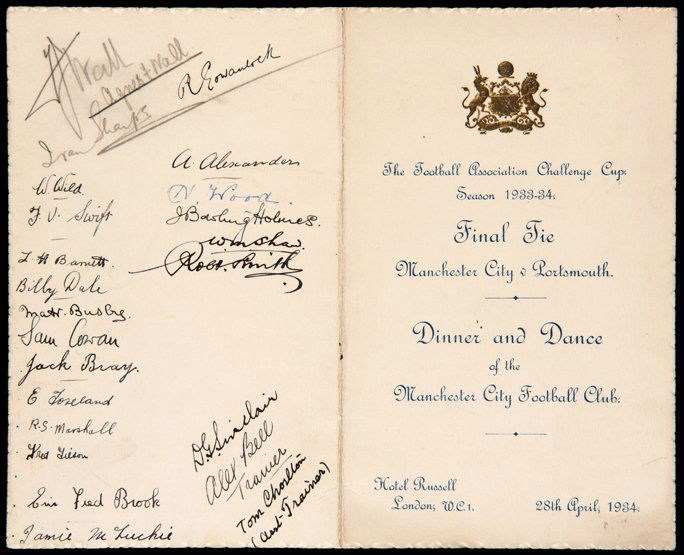 Wall
Agnes Wall
Ivan Sharpe
R Gowanlock
W. Wild.
F. V. Swift
L. H. Barnett.
Billy Dale
Matt. Busby.
Sam Cowan
Jack Bray.
E Toseland
R.S. Marshall
Fred Tilson
Eric Fred Brook
Jamie McLuckie
A. Alexander
N. Wood
J Bowling Holmes.
Wm Shaw.
Robt. Smith
D G Sinclair
Alex Bell
Trainer
Tom Chorlton
(Asst Trainer)
The Football Association Challenge Cup.
Season 1933-34.
Final Tie
Manchester City v Portsmouth.
Dinner and Dance
of the
Manchester City Football Club.
Hotel Russell
London, W.C1.
28th April, 1934.